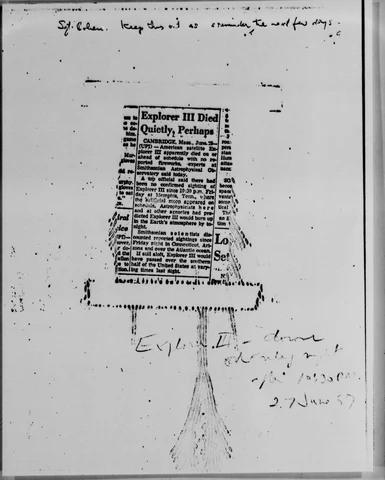 Sgt. Cohen. Keep this out as a reminder the next few days.
Explorer III Died
Quietly, Perhaps
CAMBRIDGE, Mass., June 28—
(UPI)—American satellite Ex-
plorer III apparently died on or
ahead of schedule with no re-
ported fireworks, experts at
Smithsonian Astrophysical Ob-
servatory said today.
A top official said there had
been no confirmed sighting of
Explorer III since 10:30 p.m. Fri-
day at Memphis, Tenn., where
the satellite moon appeared on
schedule. Astrophysicists here
and at other agencies had pre-
dicted Explorer III would burn up
in the Earth's atmosphere by to-
night.
Smithsonian scientists dis-
counted reported sightings since
Friday night in Connecticut, Ari-
zona and over the Atlantic ocean.
If still aloft, Explorer III would
have passed over the southern
half of the United States at vary-
ing times last night.
Lo
Set
Explorer III — down
10:30 P.M.
27 June 57